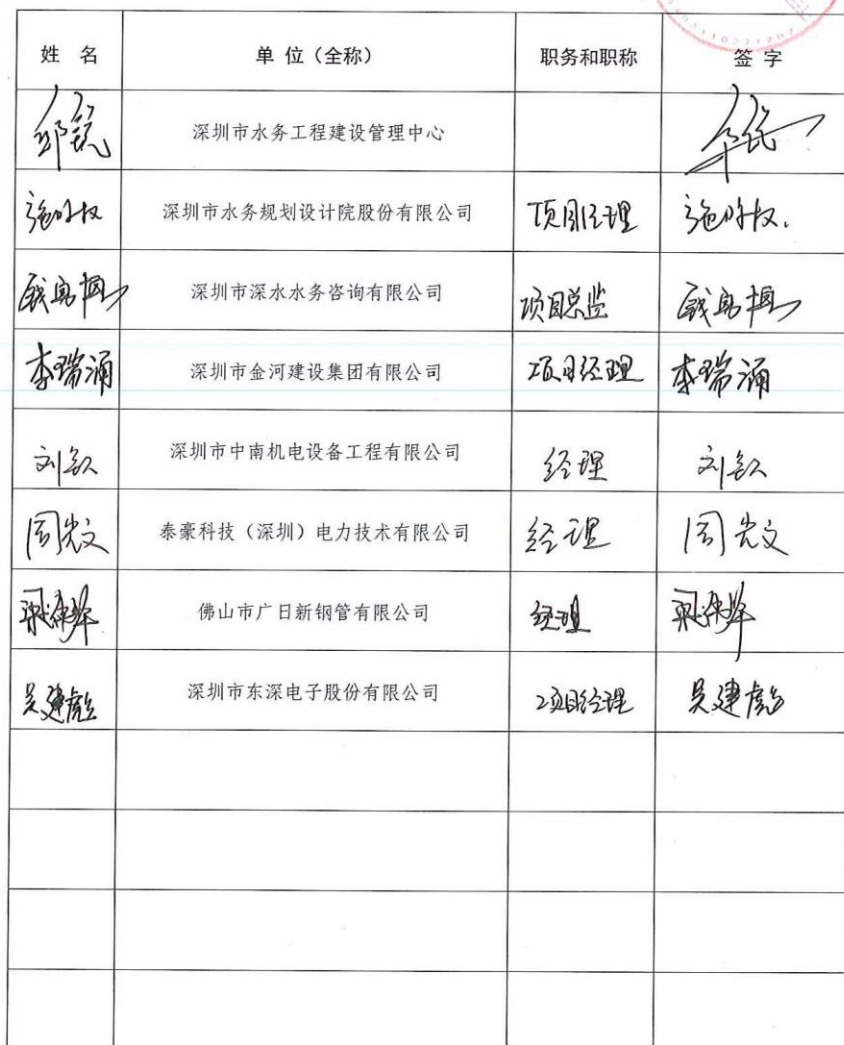 姓 名 单 位（全称） 职务和职称 签 字
深圳市水务工程建设管理中心
施时权 深圳市水务规划设计院股份有限公司 项目经理 施时权.
深圳市深水水务咨询有限公司 项目总监
李瑞涌 深圳市金河建设集团有限公司 项目经理 李瑞涌
刘钦 深圳市中南机电设备工程有限公司 经理 刘钦
周光文 泰豪科技（深圳）电力技术有限公司 经理 周光文
佛山市广日新钢管有限公司 经理
吴建彪 深圳市东深电子股份有限公司 项目经理 吴建彪